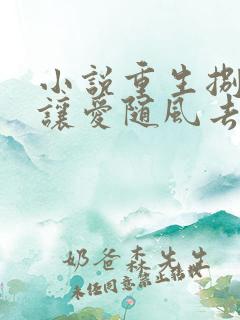 小說重生捌
讓愛隨風去
奶爸森先生
未經同意禁止轉載